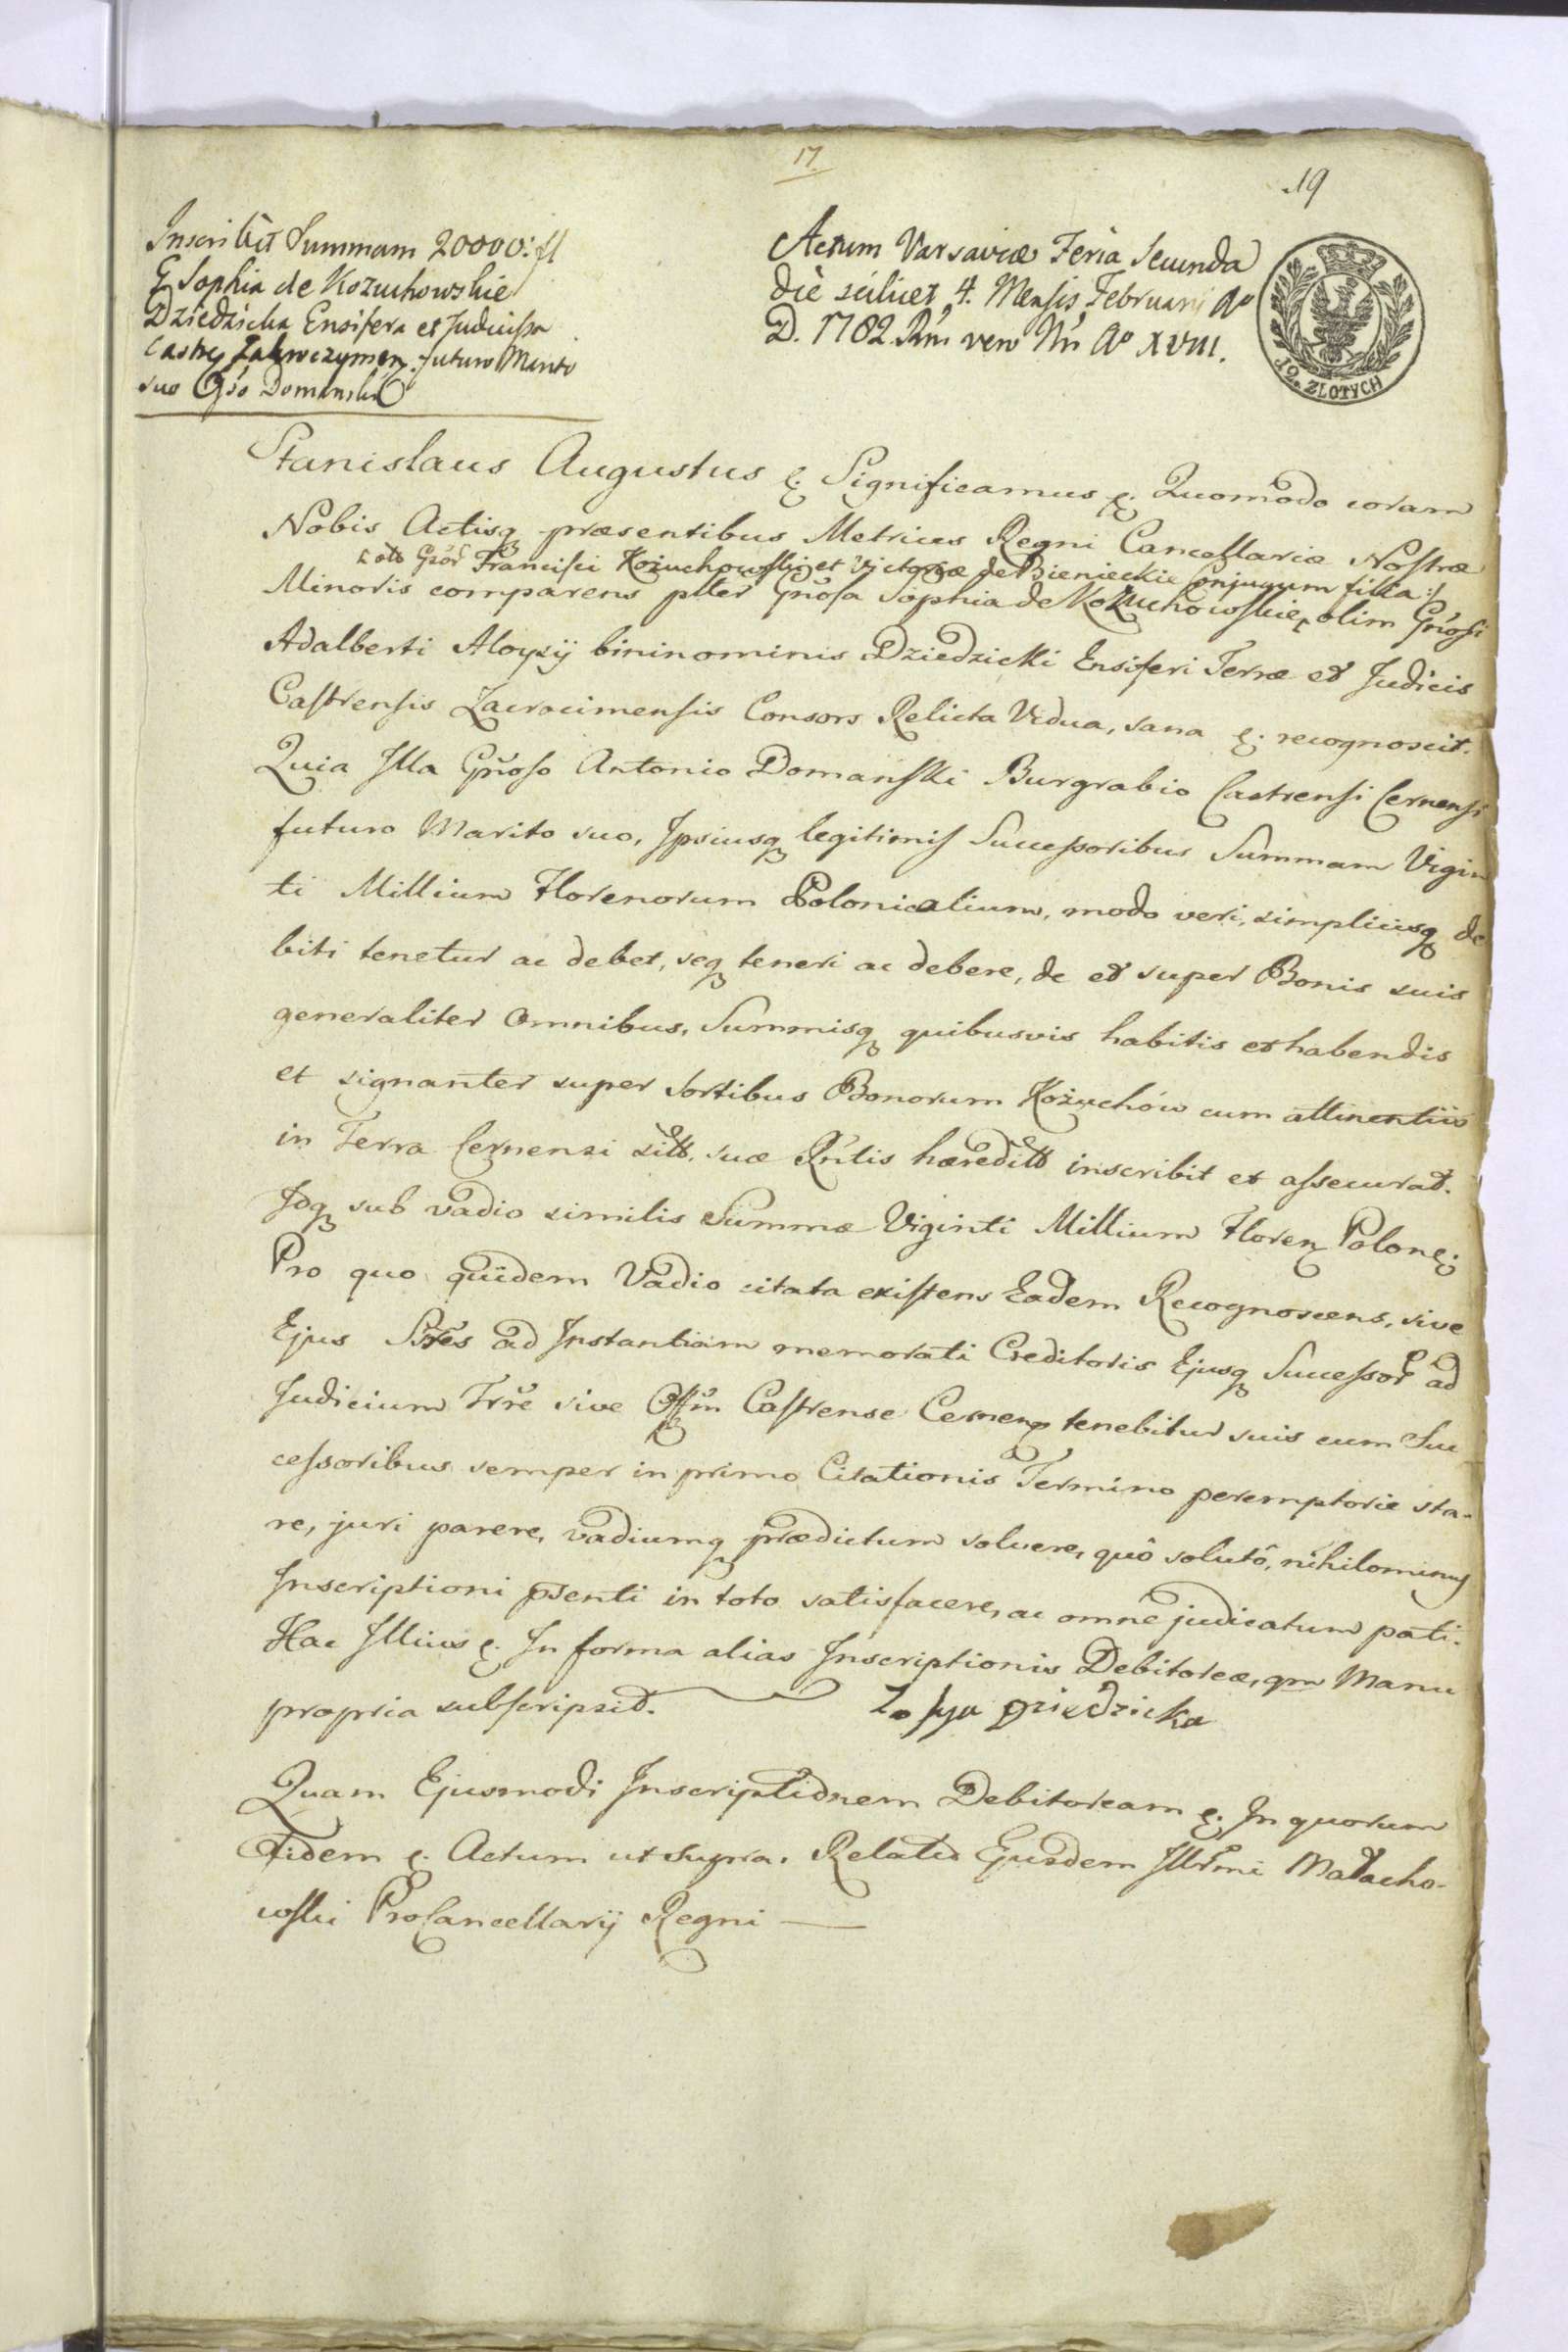 17.
19
Inscribit Summam 20000: fl
G Sophia de Kozuchowskie
Dziedzicka Ensifera et Judicissa
Castr Zakroczymen: futuro Marito
suo Gso Domanski
Actum Varsaviæ Feria Secunda
die scilicet 4. Mensis Februarij Ao
D. 1782 Rni vero Nri Ao XVIII.
12. ZŁOTYCH
Stanislaus Augustus &. Significamus &. Quomodo coram
Nobis Actisq præsentibus Metrices Regni Cancellariæ Nostræ
Francisci Kożuchowski et Victoriæ de Bienieckie Conjugum filia :/
Minoris comparens plter Gnosa Sophia de Kożuchowskie, olim Gnosi
Adalberti Aloysij bininominis Dziedzicki Ensiferi Terræ et Judicis
Castrensis Zacrocimensis Consors Relicta Vidua, sana &. recognoscit.
Quia Illa Gnoso Antonio Domanski Burgrabio Castrensi Cernensi
futuro Marito suo, Ipsiusq legitimis Successoribus Summam Vigin
ti Millium Florenorum Polonicalium, modo veri, simplicisq de
biti tenetur ac debet, seq teneri ac debere, de et super Bonis suis
generaliter omnibus, Summisq quibusvis habitis et habendis
et signanter super Sortibus Bonorum Kożuchów cum attinentiis
in Terra Cernensi sitt. suæ Rntis hæreditt inscribit et assecurat.
Idq sub vadio similis Summæ Viginti Millium Floren Polon &.
Pro quo quidem Vadio citata existens Eadem Recognoscens, sive
Ejus Sres ad Instantiam memorati Creditoris Ejusq Successor ad
Judicium Trre sive Offm Castrense Cernen tenebitur suis cum Suc
cessoribus semper in primo Citationis Termino peremptorie sta-
re, juri parere, vadiumq prædictum solvere, quô solutô, nihilominus
Inscriptioni psenti in toto satisfacere, ac omne judicatum pati.
Hac Illius &. In forma alias Inscriptionis Debitoreæ, qm Manu
propria subscripsit. Zofya Dziedzicka
Quam Ejusmodi Inscriptionem Debitoream &. In quorum
Fidem &. Actum ut supra. Relatio Ejusdem Illrmi Małacho-
wski ProCancellarij Regni